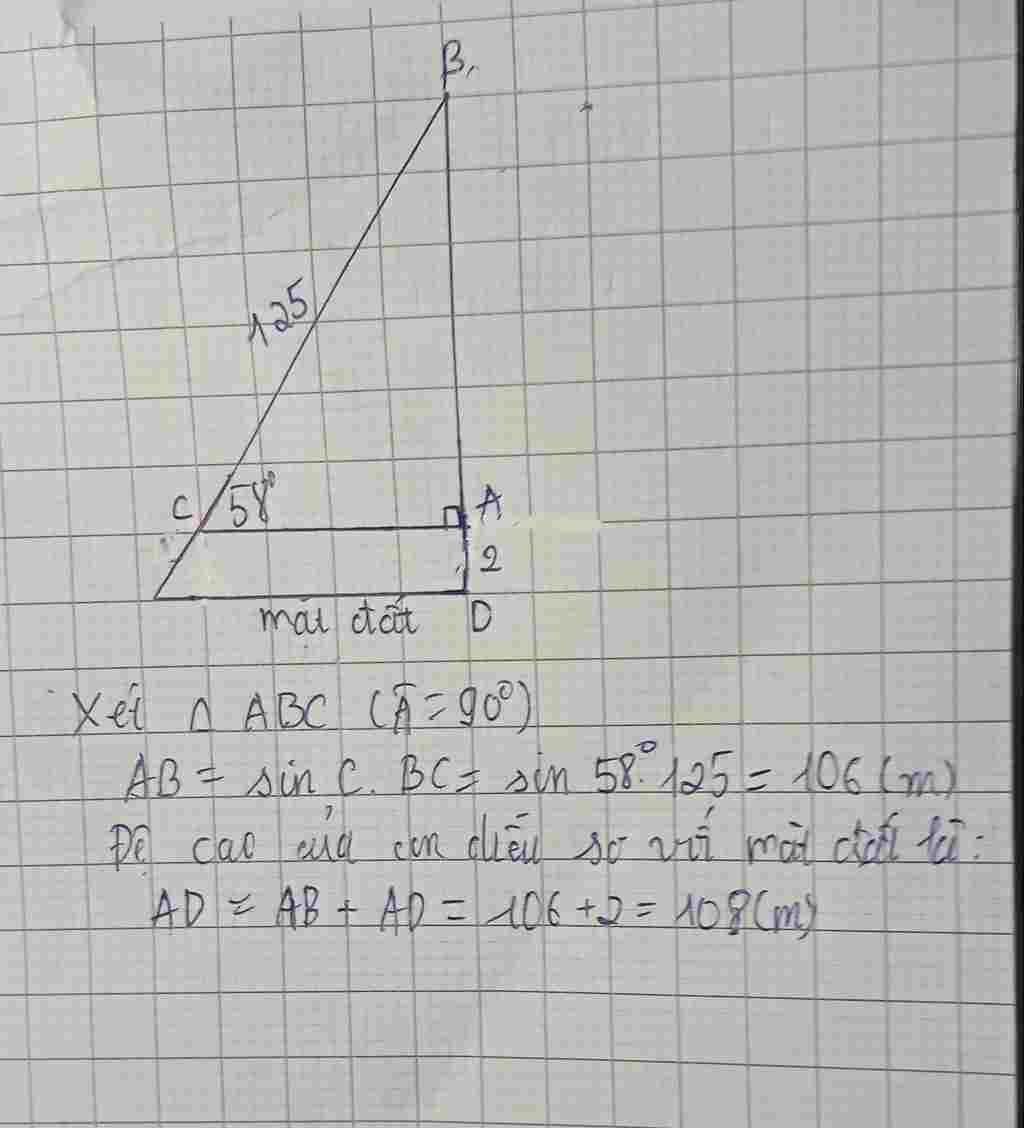 B
125
C
58°
A
2
mặt đất
D
Xét Δ ABC (Â = 90°)
AB = sin C. BC = sin 58°. 125 = 106 (m)
Độ cao của con diều so với mặt đất là:
AD = AB + AD = 106 + 2 = 108 (m)